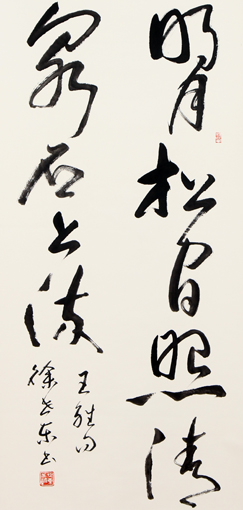 明月松间照清
泉石上流
王维句
徐
书